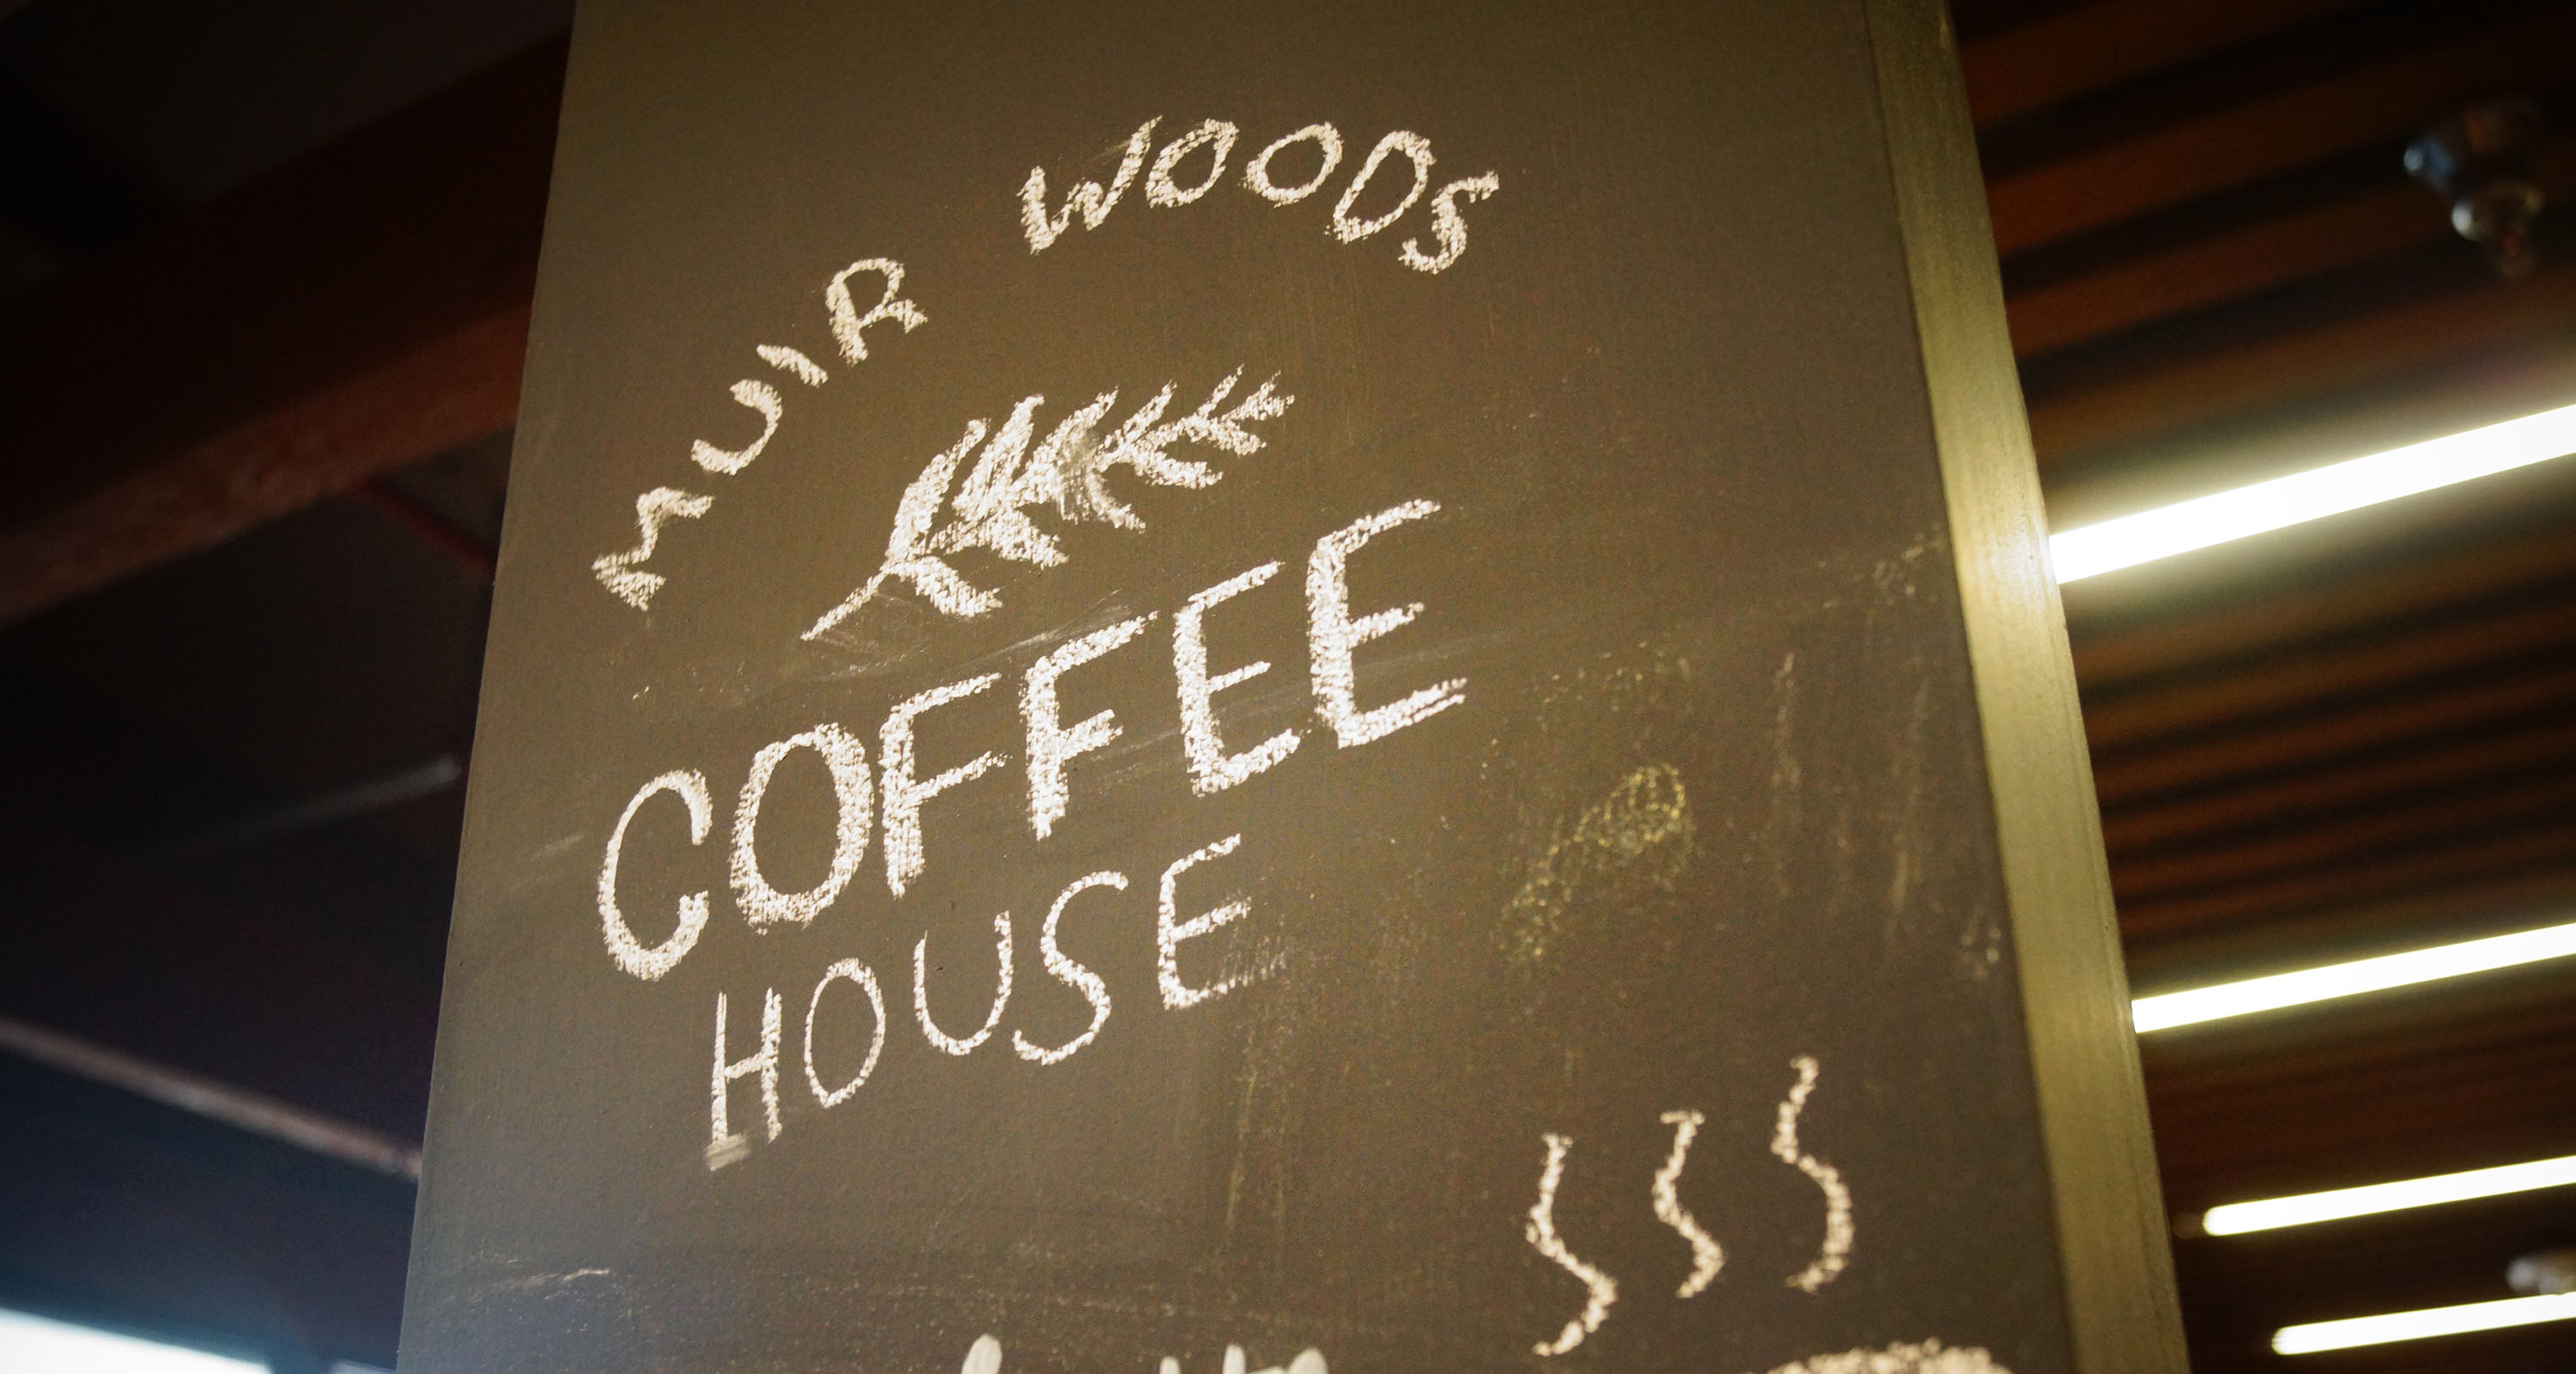 MUIR WOODS
COFFEE
HOUSE